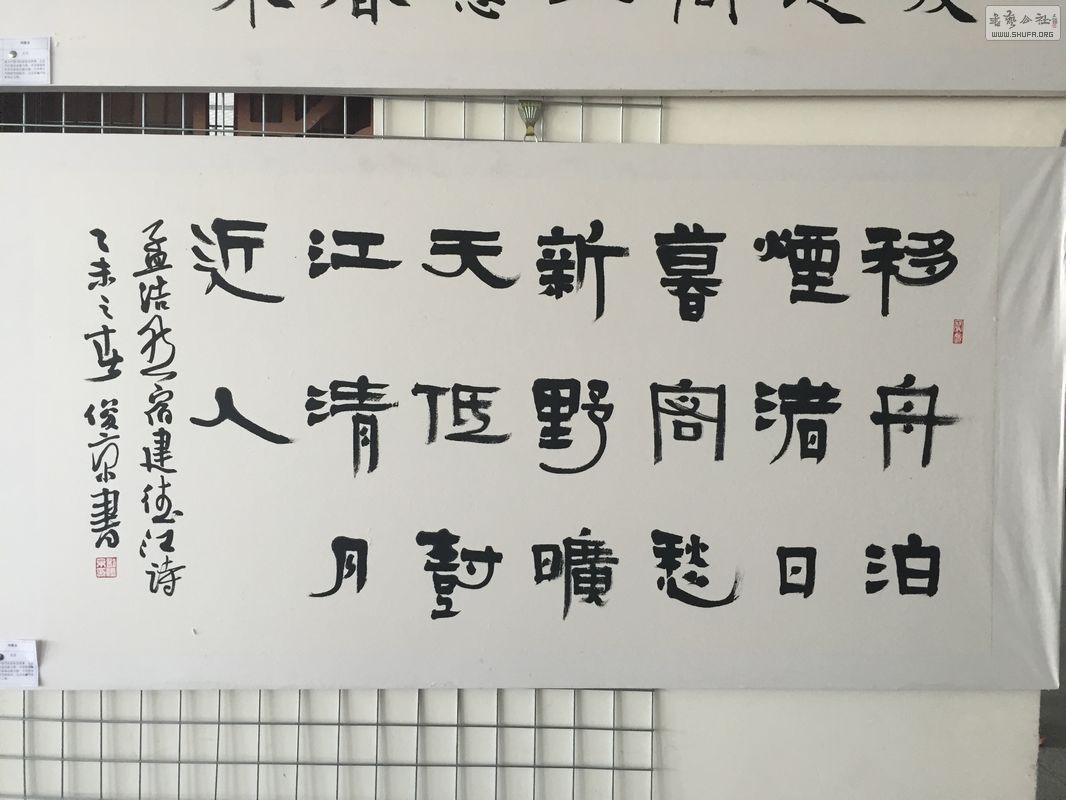 書藝公社
WWW.SHUFA.ORG
移舟泊
煙渚日
暮客愁
新野曠
天低樹
江清月
近人
孟浩然宿建德江詩
乙未之春 俊 書